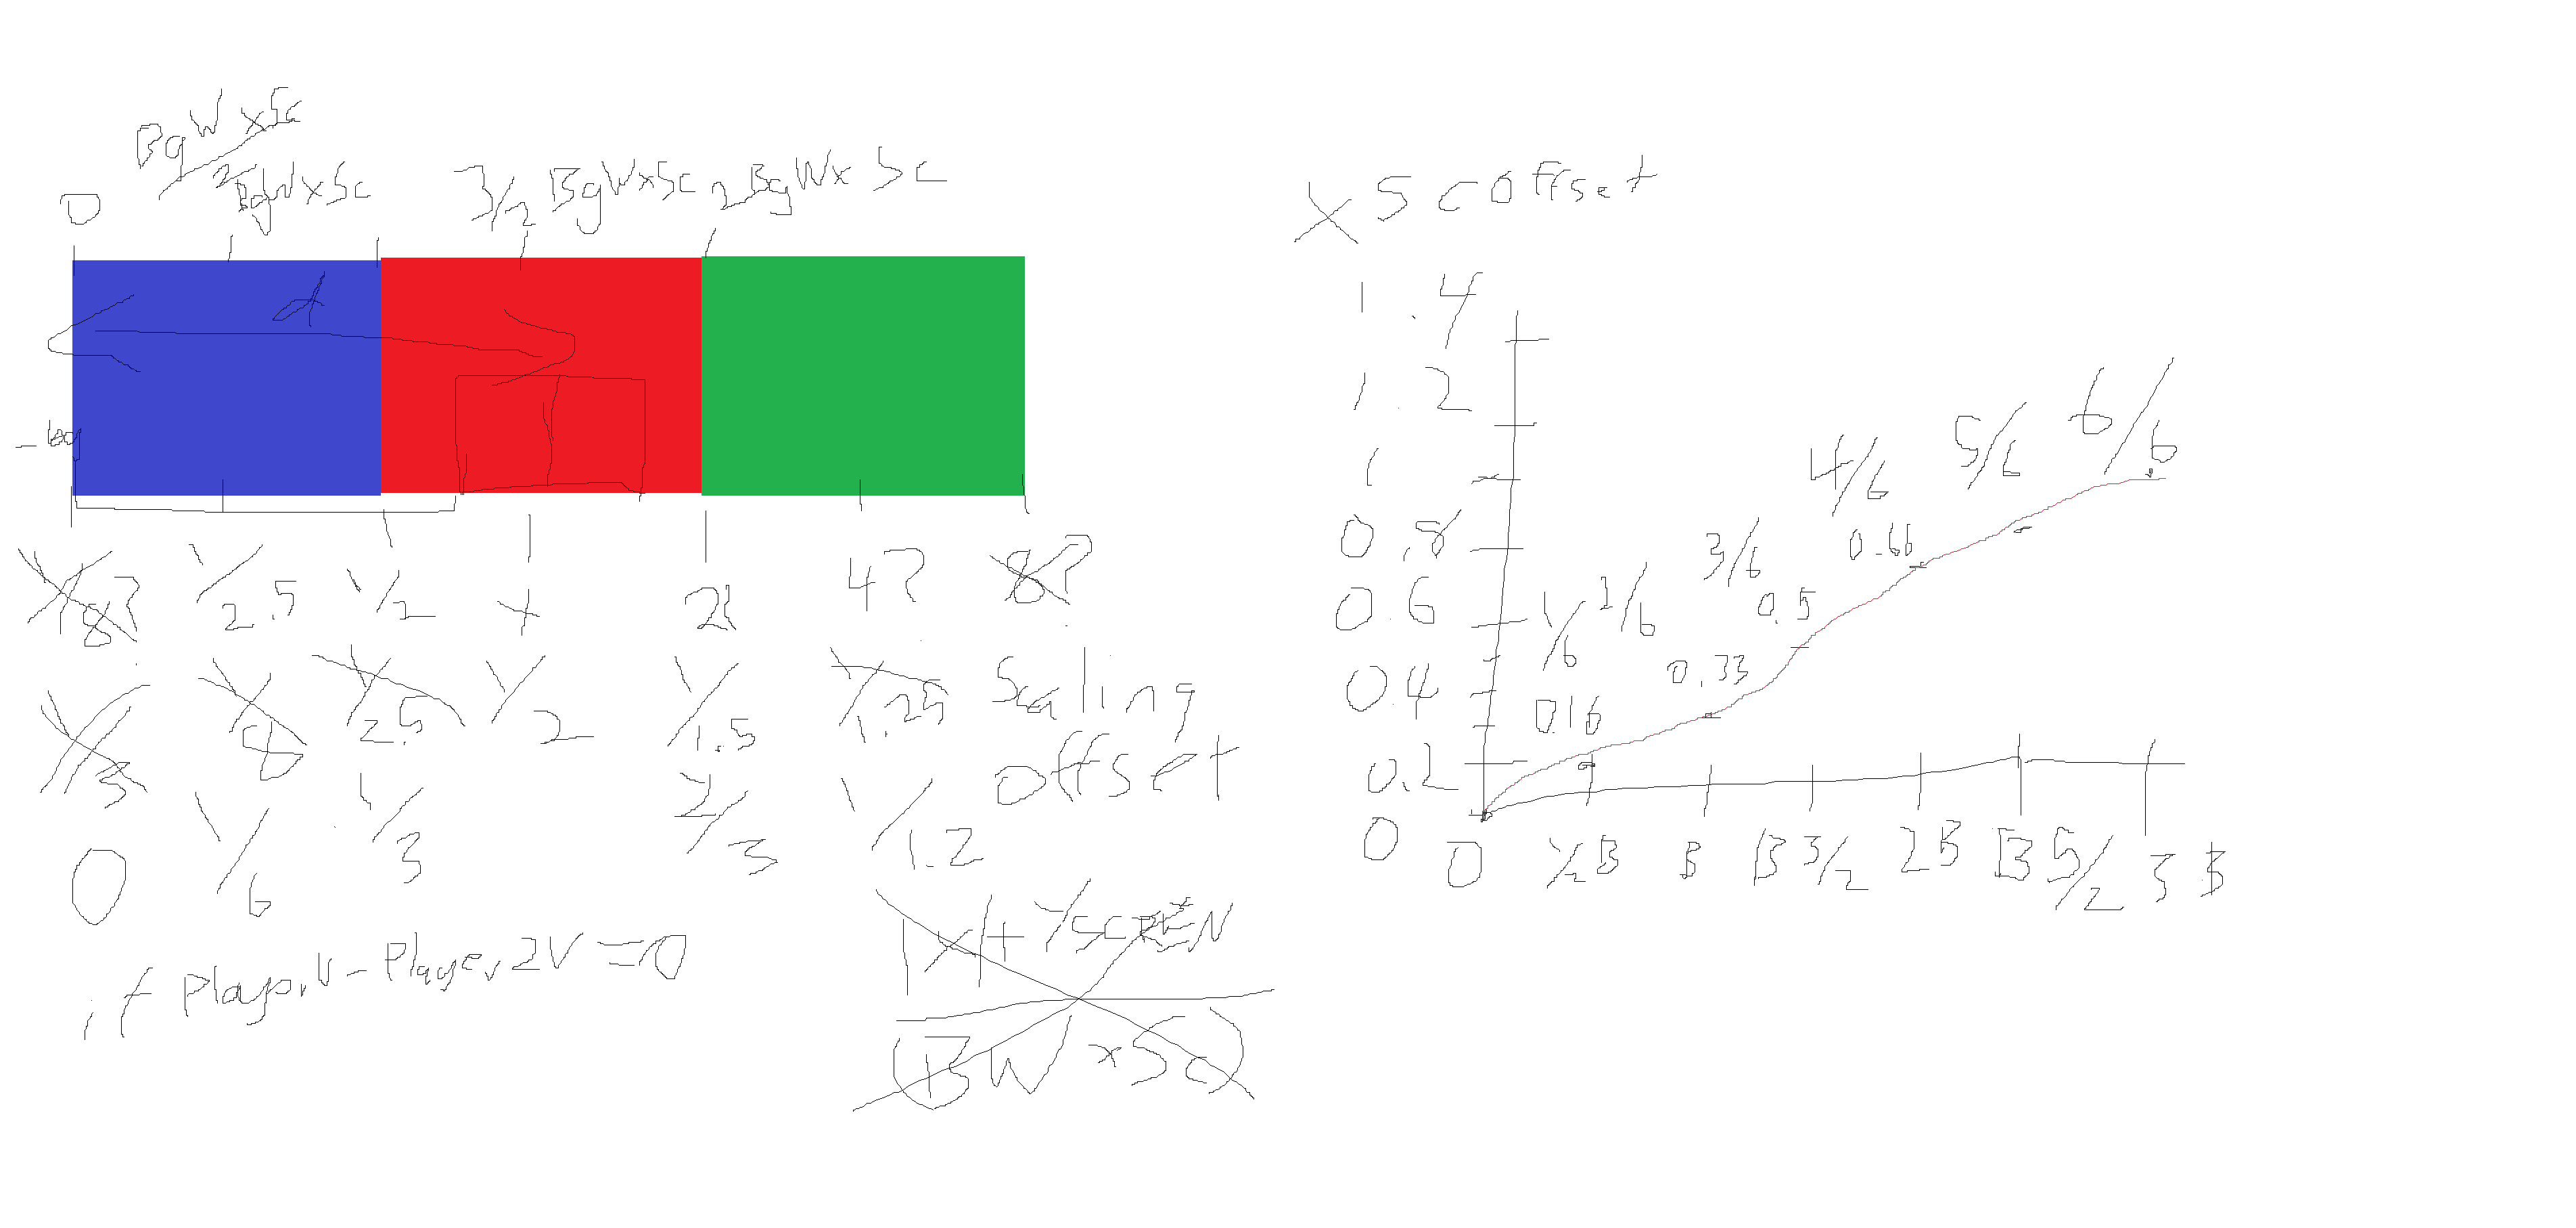 BgW x Sc
2
0
BgWxSc
3/2 BgWxSc
2 BgWx Sc
d
1/8?
1/2.5
1/2
1
2
4?
8?
1/3
1/8
1/2.5
1/2
1/1.5
1/1.25
Scaling
Offset
0
1/6
1/3
2/3
1/1.2
if PlayerV - Player2V = 0
|x| + 1/2SCREEN
(BW x Sc)
X Sc Offset
1.4
1.2
1
0.8
0.6
0.4
0.2
0
1/6
2/6
3/6
4/6
5/6
6/6
0.16
0.33
0.5
0.66
0
1/2B
B
B 3/2
2B
B 5/2
3B